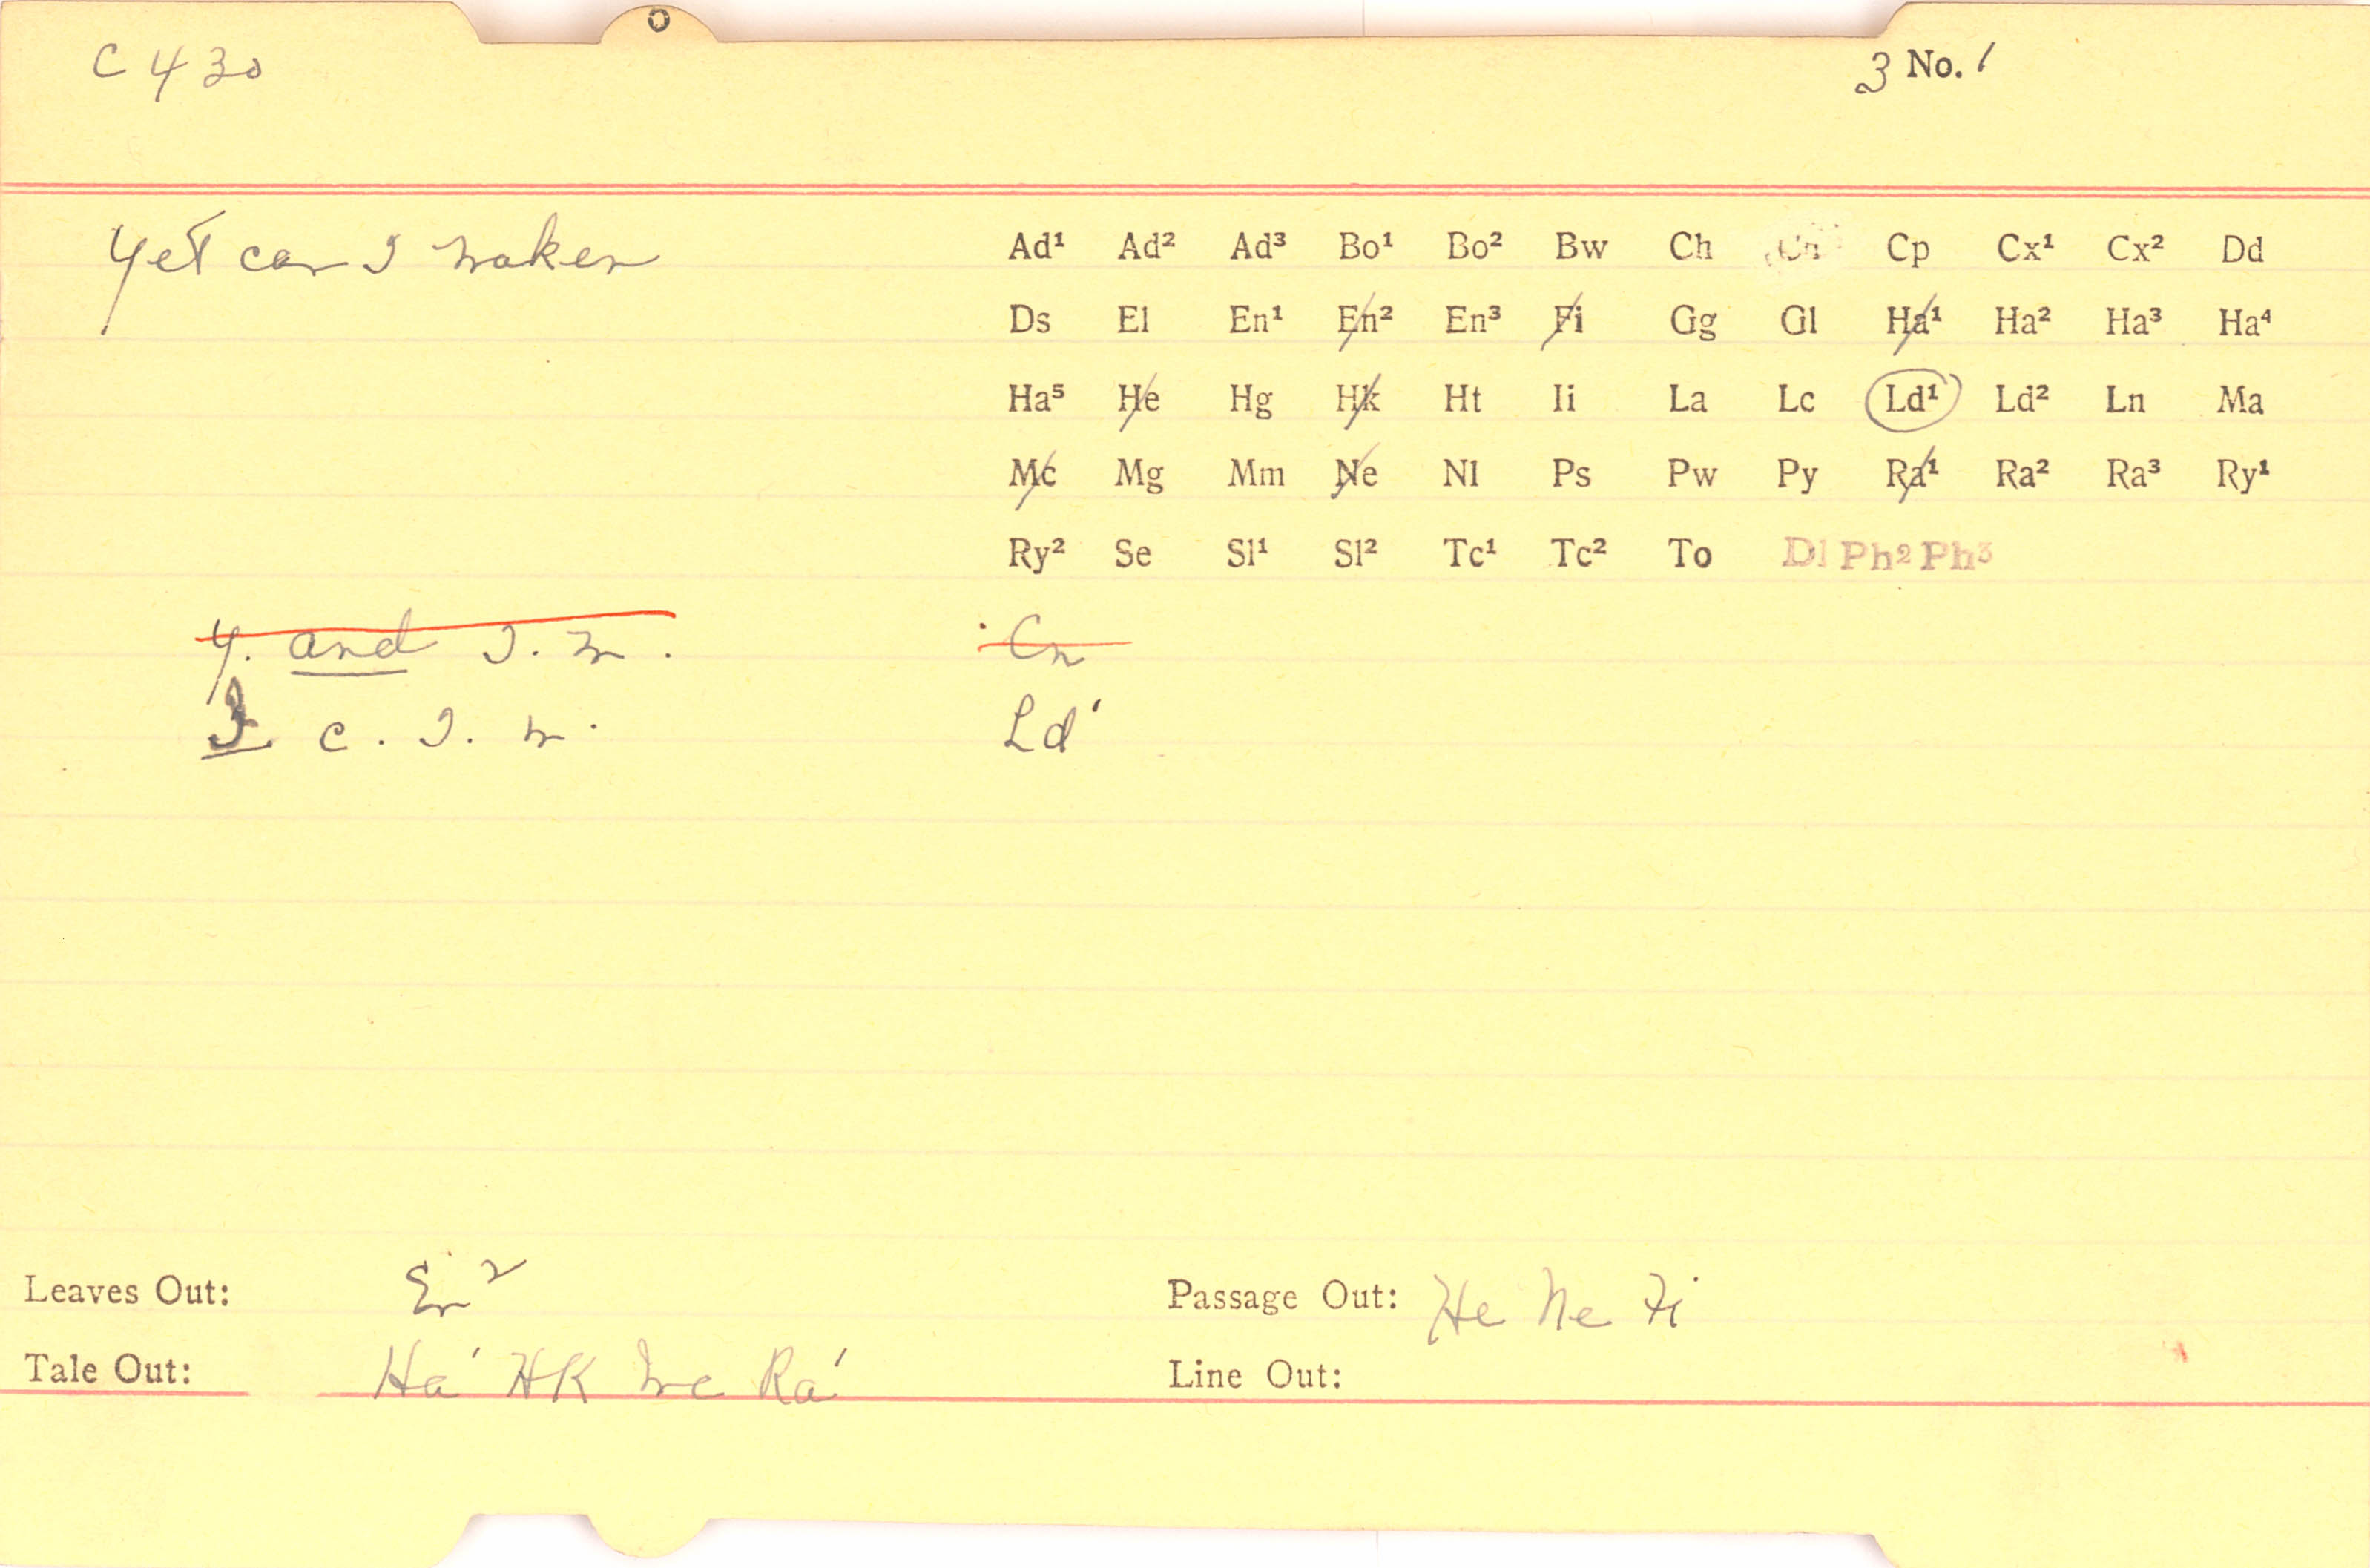 C 430
3 No. 1
Yet can I maken
Ad¹ Ad² Ad³ Bo¹ Bo² Bw Ch Cn Cp Cx¹ Cx² Dd
Ds El En¹ En² En³ Fi Gg Gl Ha¹ Ha² Ha³ Ha⁴
Ha⁵ He Hg Hk Ht Ii La Lc Ld¹ Ld² Ln Ma
Mc Mg Mm Ne Nl Ps Pw Py Ra¹ Ra² Ra³ Ry¹
Ry² Se Sl¹ Sl² Tc¹ Tc² To Dl Ph² Ph³
Y. and I. m. Cn
c. I. m. Ld¹
Leaves Out: En²
Passage Out: He Ne Fi
Tale Out: Ha¹ Hk Mc Ra¹
Line Out: